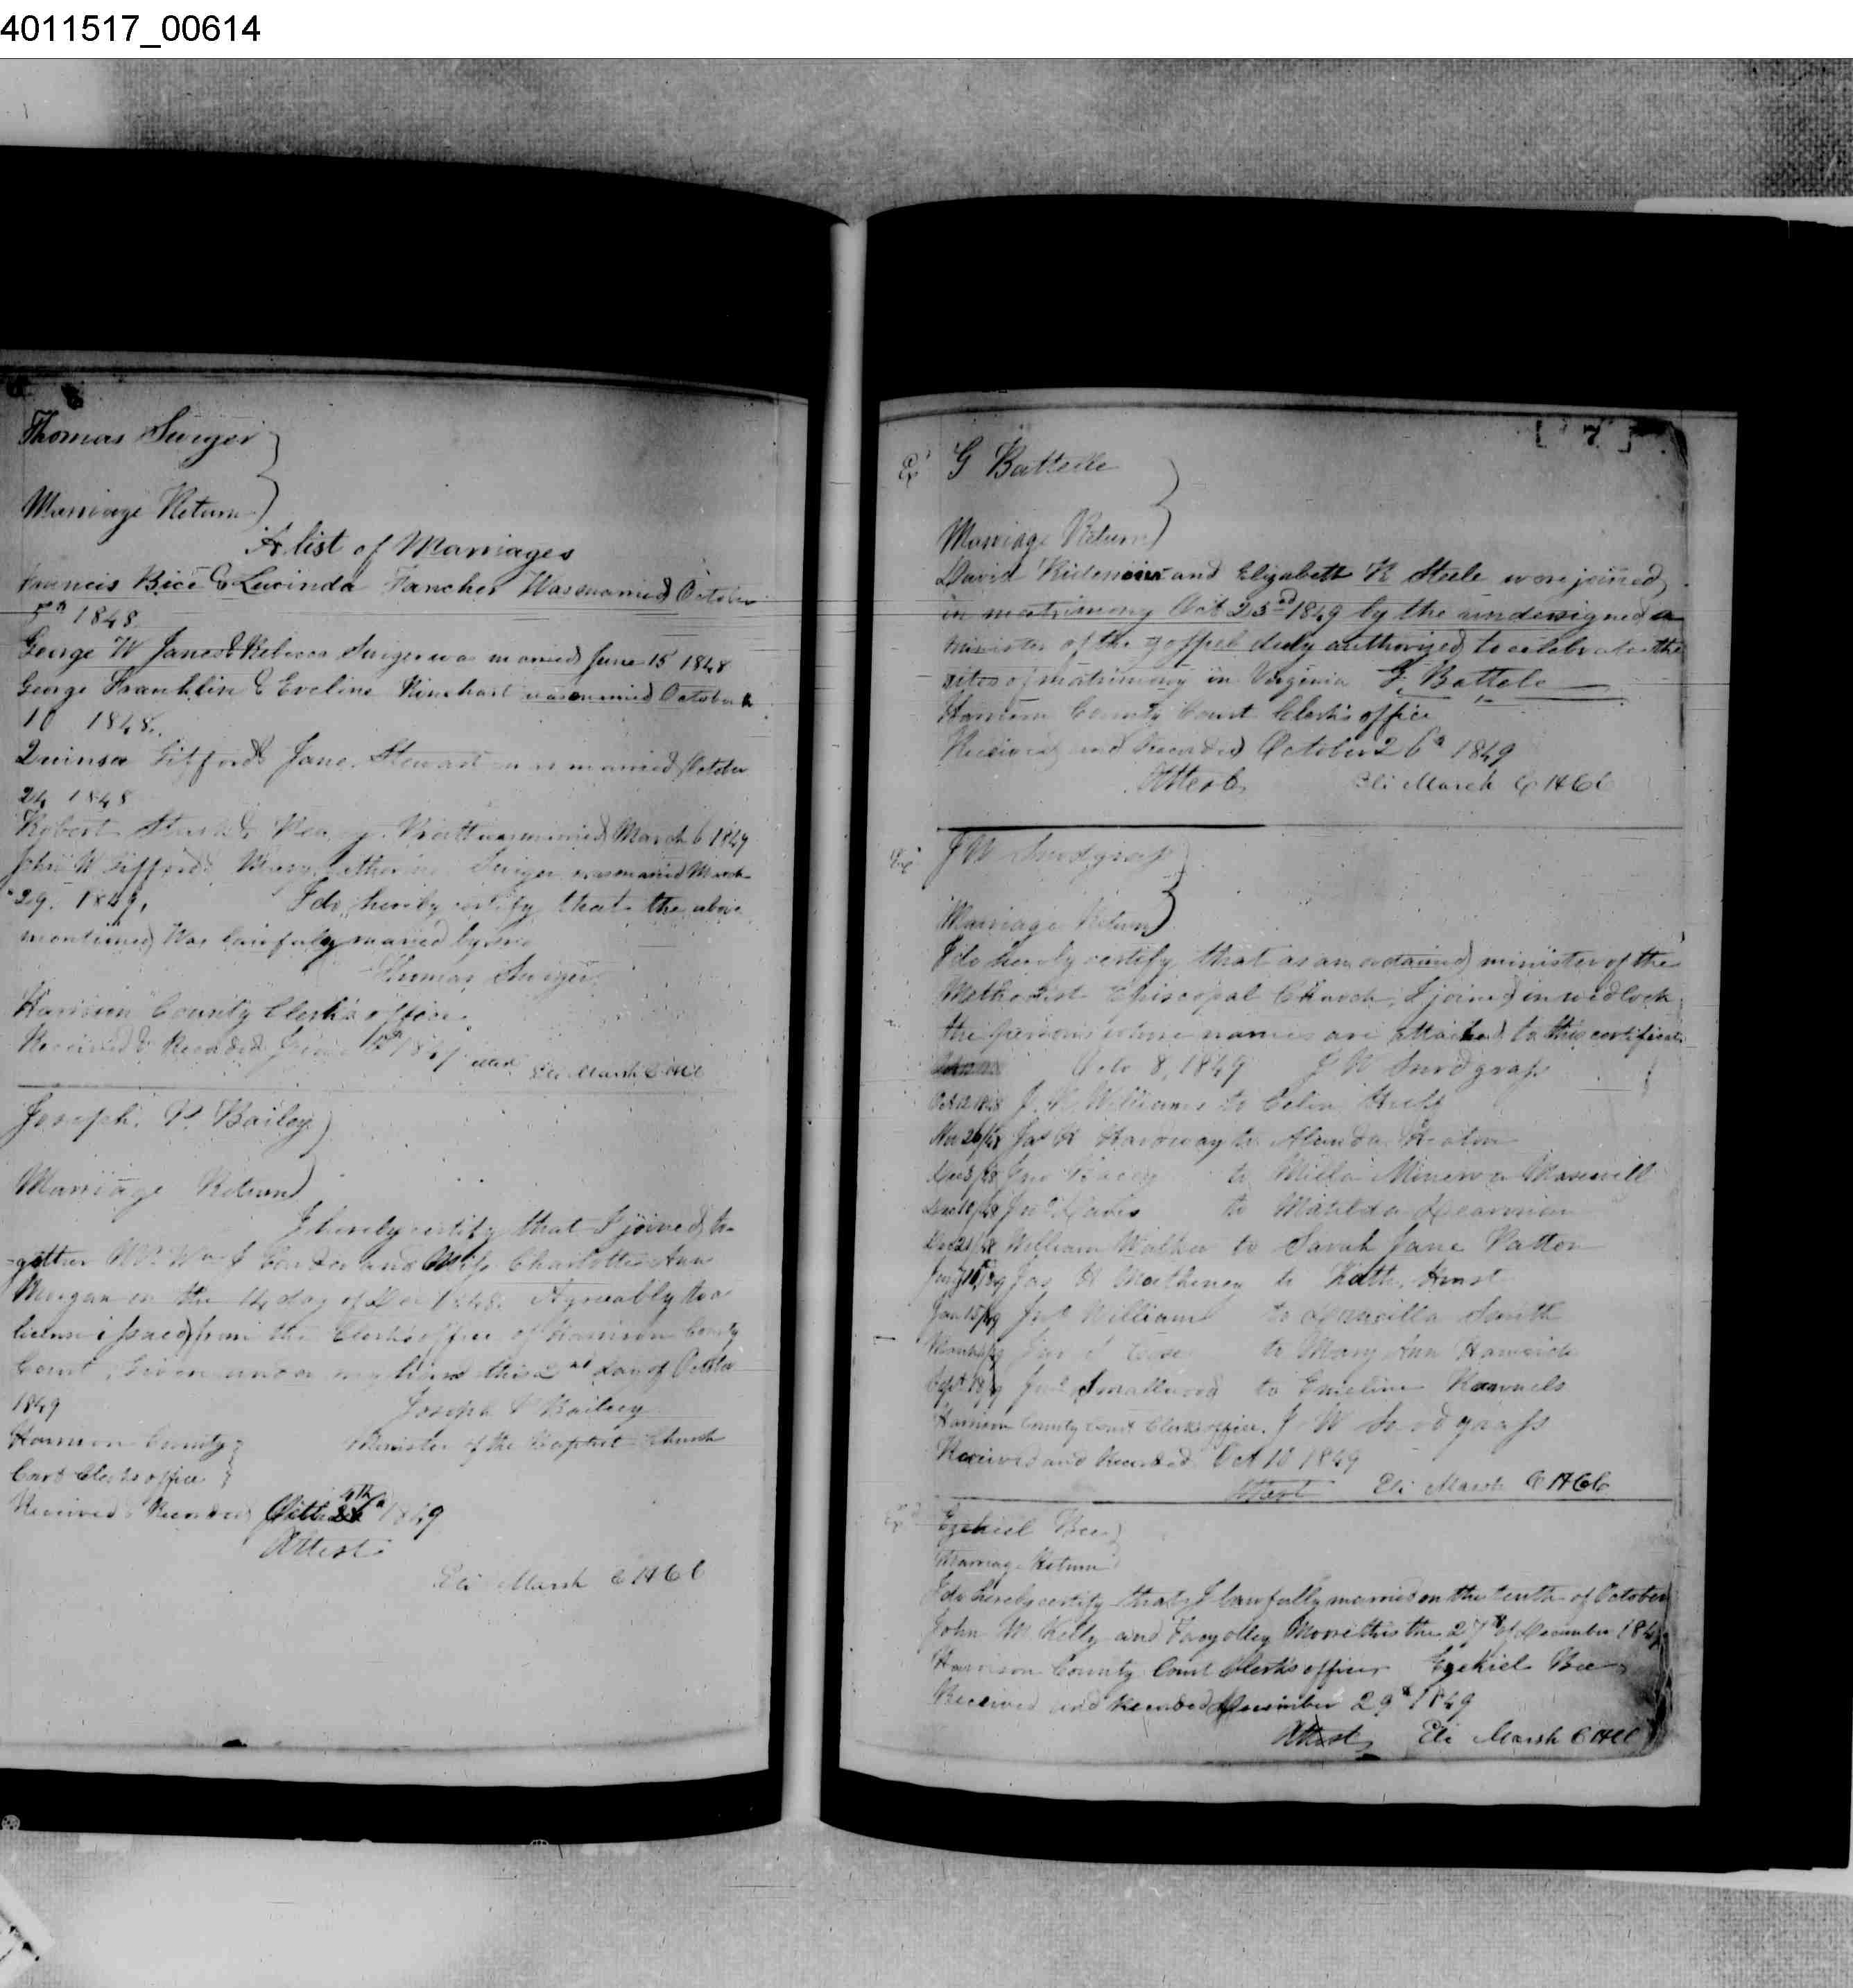 4011517_00614
Thomas Swiger
Marriage Return
A list of Marriages
Francis Bice & Lucinda Fancher Was married October
5th 1848
George W Janes & Rebecca Swiger was married June 15 1848
George Franklin & Eveline Rinehart was married October
10 1848
Jane Stewart was married October
24 1848
Robert Pratt was married March 6 1849
John W Tifford Mary Catherine Swiger was married March
29. 1849, I do hereby certify that the above
mentioned Was lawfully maried by me
Thomas Swiger
Harrison County Clerk's office
Received & Recorded Eli Marsh C H C C
Joseph. P. Bailey
Marriage Return
I hereby certify that I joined to-
-gether Mr Wm J and Miss Charlotte Ann
Morgan on the 14 day of Dec 1848. Agreeably to a
license issued from the Clerk's office of Harrison County
Court, Given under my hand this 2nd day of October
1849 Joseph P Bailey
Harrison County Minister of the Baptist Church
Court Clerks office
Received & Recorded 4th 1849
Attest
Eli Marsh C H C C
[ 7 ]
G Battelle
Marriage Return
David Ridenour and Elizabeth R Steele were joined
in matrimony Oct 23rd 1849 by the undersigned a
minister of the gospel duly authorized to celebrate the
rites of matrimony in Virginia G. Battele
Harrison County Court Clerk's office
Received and Recorded October 26th 1849
Attest Eli Marsh C H C C
J W Snodgrass
Marriage Return
I do hereby certify that as an ordained minister of the
Methodist Episcopal Church, I joined in wedlock
the persons whose names are attached to this certificate
Octo 8, 1849 J W Snodgrass
Williams to Celia Huff
Jas H Hardway to
to Milla Minerva Maxwell
Dec 10/48 Jno Davis to Matilda
Dec 21/48 William Walker to Sarah Jane Patton
Jas H Matheney to Kath. Hurst
Jan 15/49 Williams to Smith
to Mary Ann
Sept 18/49 Jno Smallwood to Emeline
Harrison County Court Clerks office. J W Snodgrass
Received and Recorded Oct 10 1849
Attest Eli Marsh C H C C
Ezekiel Bee
Marriage Return
I do hereby certify that I lawfully married on the tenth of October
John M Kelly and Moore this the 27th of December 1849
Harrison County Court Clerk's office Ezekiel Bee
Received and Recorded December 29th 1849
Attest Eli Marsh C H C C